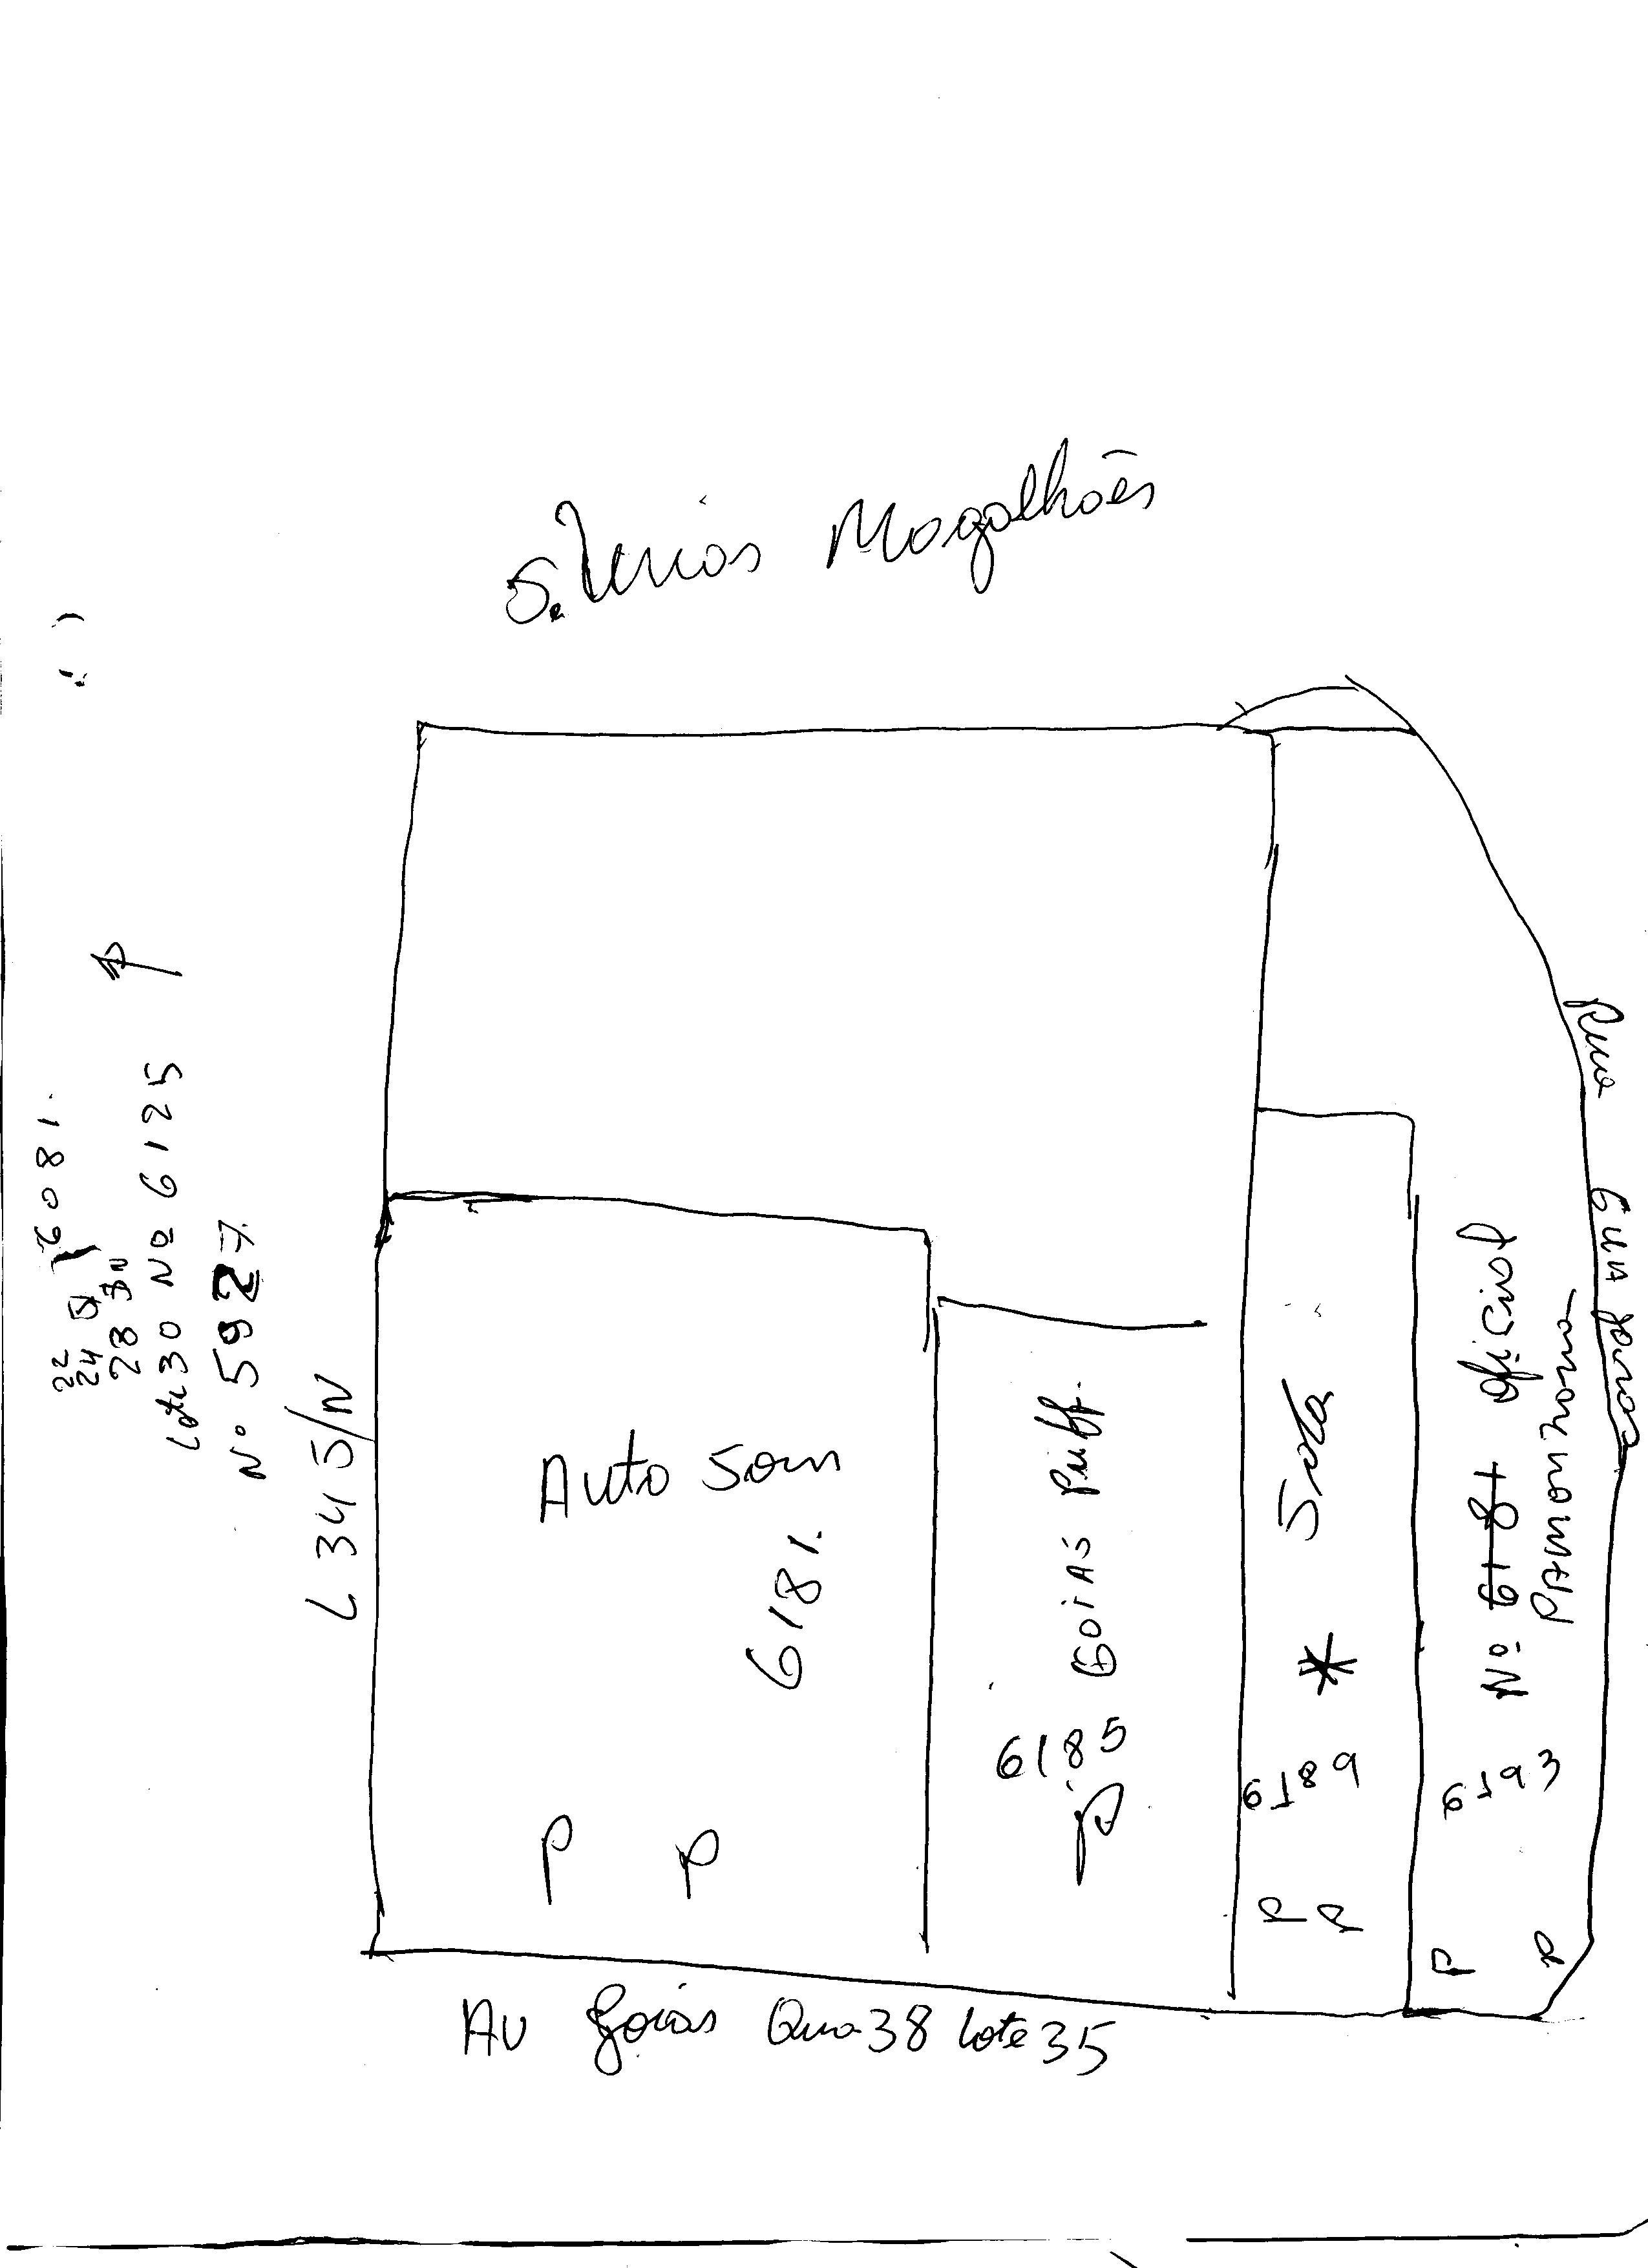 Magalhães
6081.
22
24
28
Lote 30 Nº 6125
Nº 5927.
L 34 S/N
Auto Som
6181.
Goiás Puff.
6185
P
P P
Seta
*
6189
P P
Nº 6181 oficial
PAMONHONA
6193
P P
Rua
Av Goiás Qua 38 Lote 35